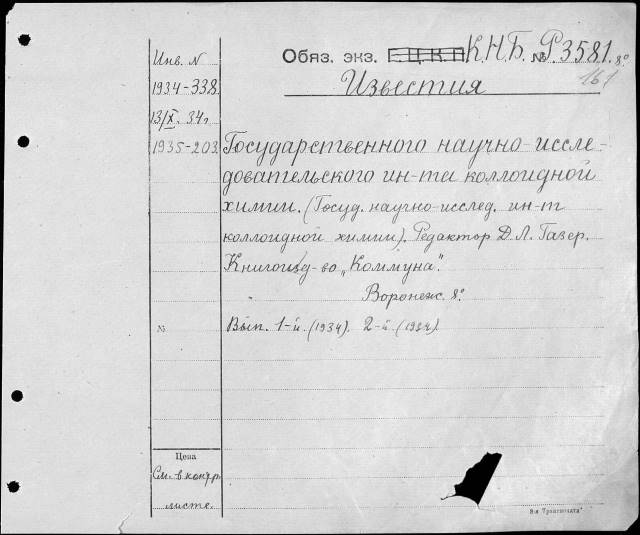 Обяз. экз. Е.Ц.К.П. К.Н.Б. № Р3581. 8º
161
Известия
Инв. N
1934-338
13/X. 34г
1935-203
Государственного научно-иссле-
довательского ин-та коллоидной
химии. (Госуд. научно-исслед. ин-т
коллоидной химии). Редактор Д.Л. Газер.
Книгоизд-во „Коммуна".
Воронеж. 8º
№
Вып. 1-й. (1934). 2-й. (1934).
Цена
См. в контр.
листе.
8-я „Транспечати"